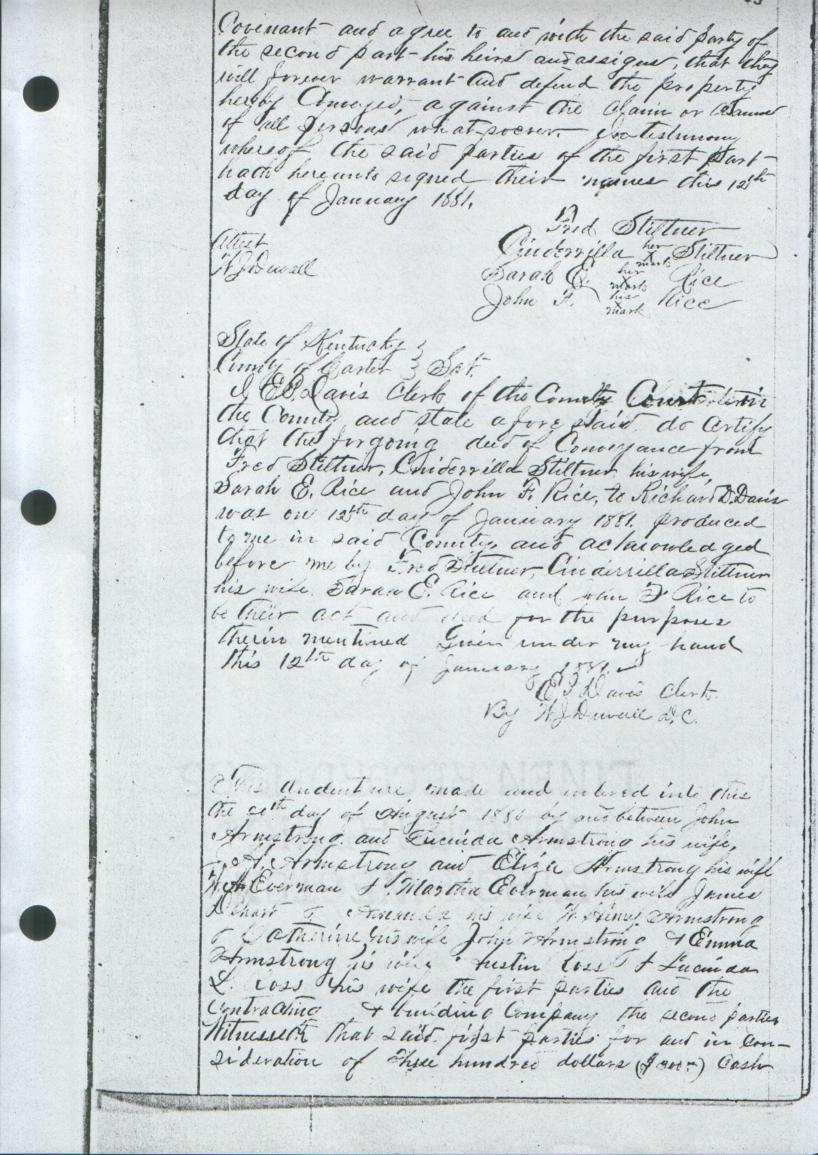 Covenant and agree to and with the said party of
the second part his heirs and assigns, that they
will forever warrant and defend the property
hereby Conveyed, against the claim or claims
of all persons whatsoever. In testimony
whereof the said parties of the first part
hath hereunto signed their names this 12th
day of January 1881.
Fred Stiltner
Attest
Cinderrilla her X mark Stiltner
W J Duvall
Sarah E. her X mark Rice
John F. his X mark Rice
State of Kentucky }
County of Carter } Sct.
I E.P. Davis Clerk of the County Court
the County and state afore said do certify
that the forgoing deed of Conveyance from
Fred Stiltner, Cinderrilla Stiltner his wife,
Sarah E. Rice and John F. Rice, to Richard D. Davis
was on 12th day of January 1881. produced
to me in said County and acknowledged
before me by Fred Stiltner, Cinderrilla Stiltner
his wife Sarah E. Rice and John F Rice to
be their act and deed for the purposes
therin mentioned Given under my hand
this 12th day of January 1881.
E P Davis Clerk
By W J Duvall D.C.
This Indenture made and entered into this
the day of August by and between John
Armstrong and Lucinda Armstrong his wife,
A. Armstrong and Eliza Armstrong his wife
Everman & Martha Everman his wife James
& his wife W. Henry Armstrong
& Catherine his wife John Armstrong & Emma
Armstrong his wife & Lucinda
his wife the first parties and the
Contracting & building Company the second parties
Witnesseth that said first parties for and in con-
sideration of three hundred dollars Cash